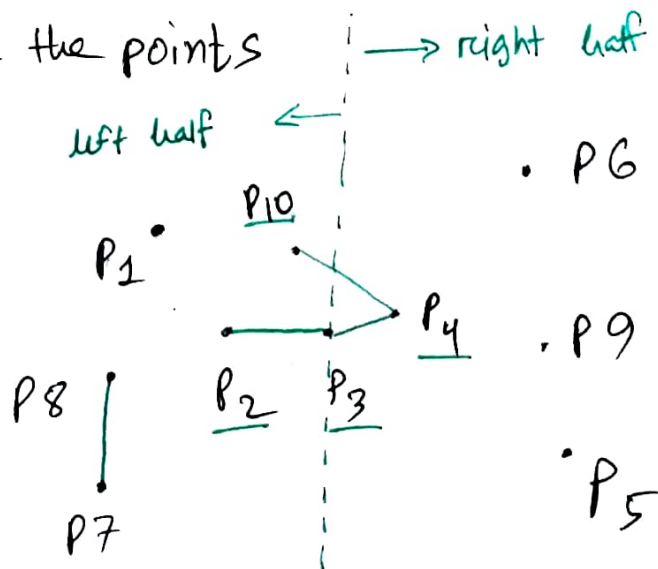 the points
→ right half
← left half
P6
P10
P1
P4
P9
P8
P2
P3
P5
P7